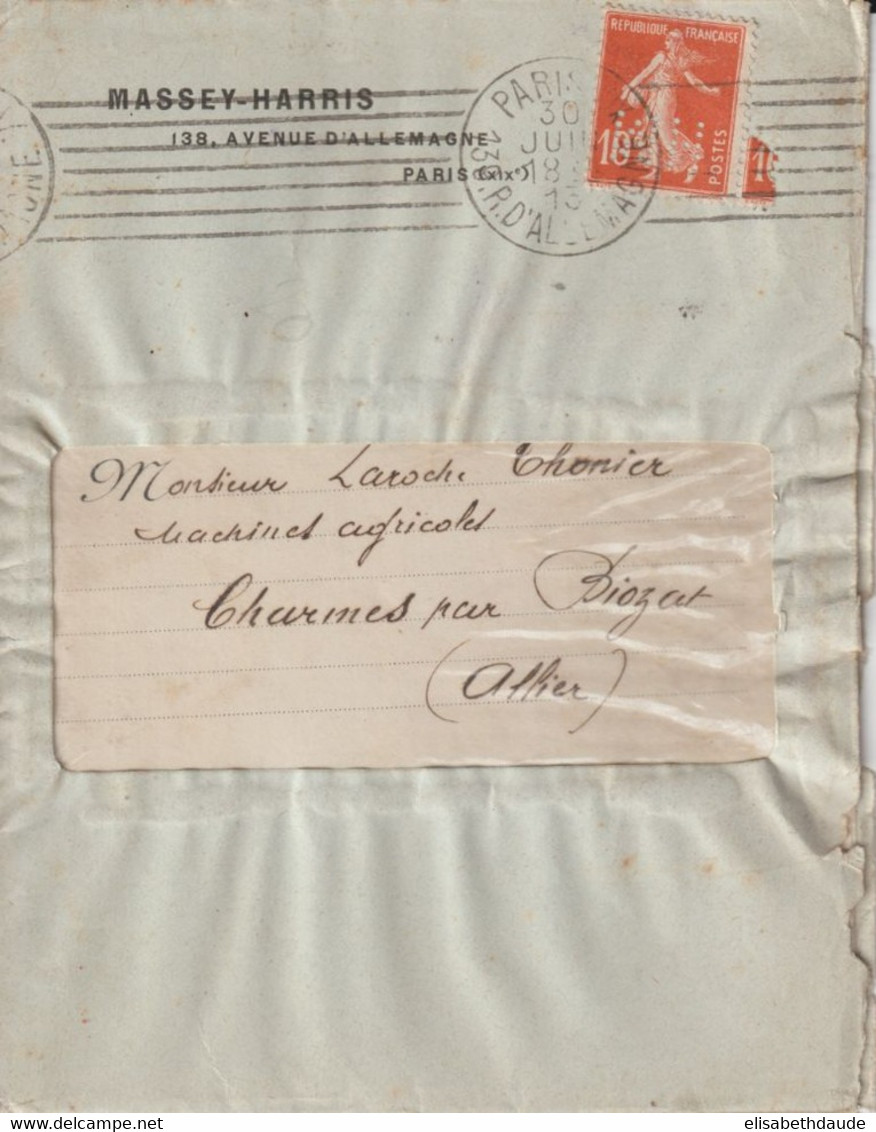 MASSEY-HARRIS
138, AVENUE D'ALLEMAGNE
PARIS (XIXe)
PARIS
30
JUIN
18
13
138.R.D'ALLEMAGNE
REPUBLIQUE FRANÇAISE
10
POSTES
Monsieur Laroche Thonier
Machines agricoles
Charmes par Biozat
(Allier)
delcampe.net
elisabethdaude